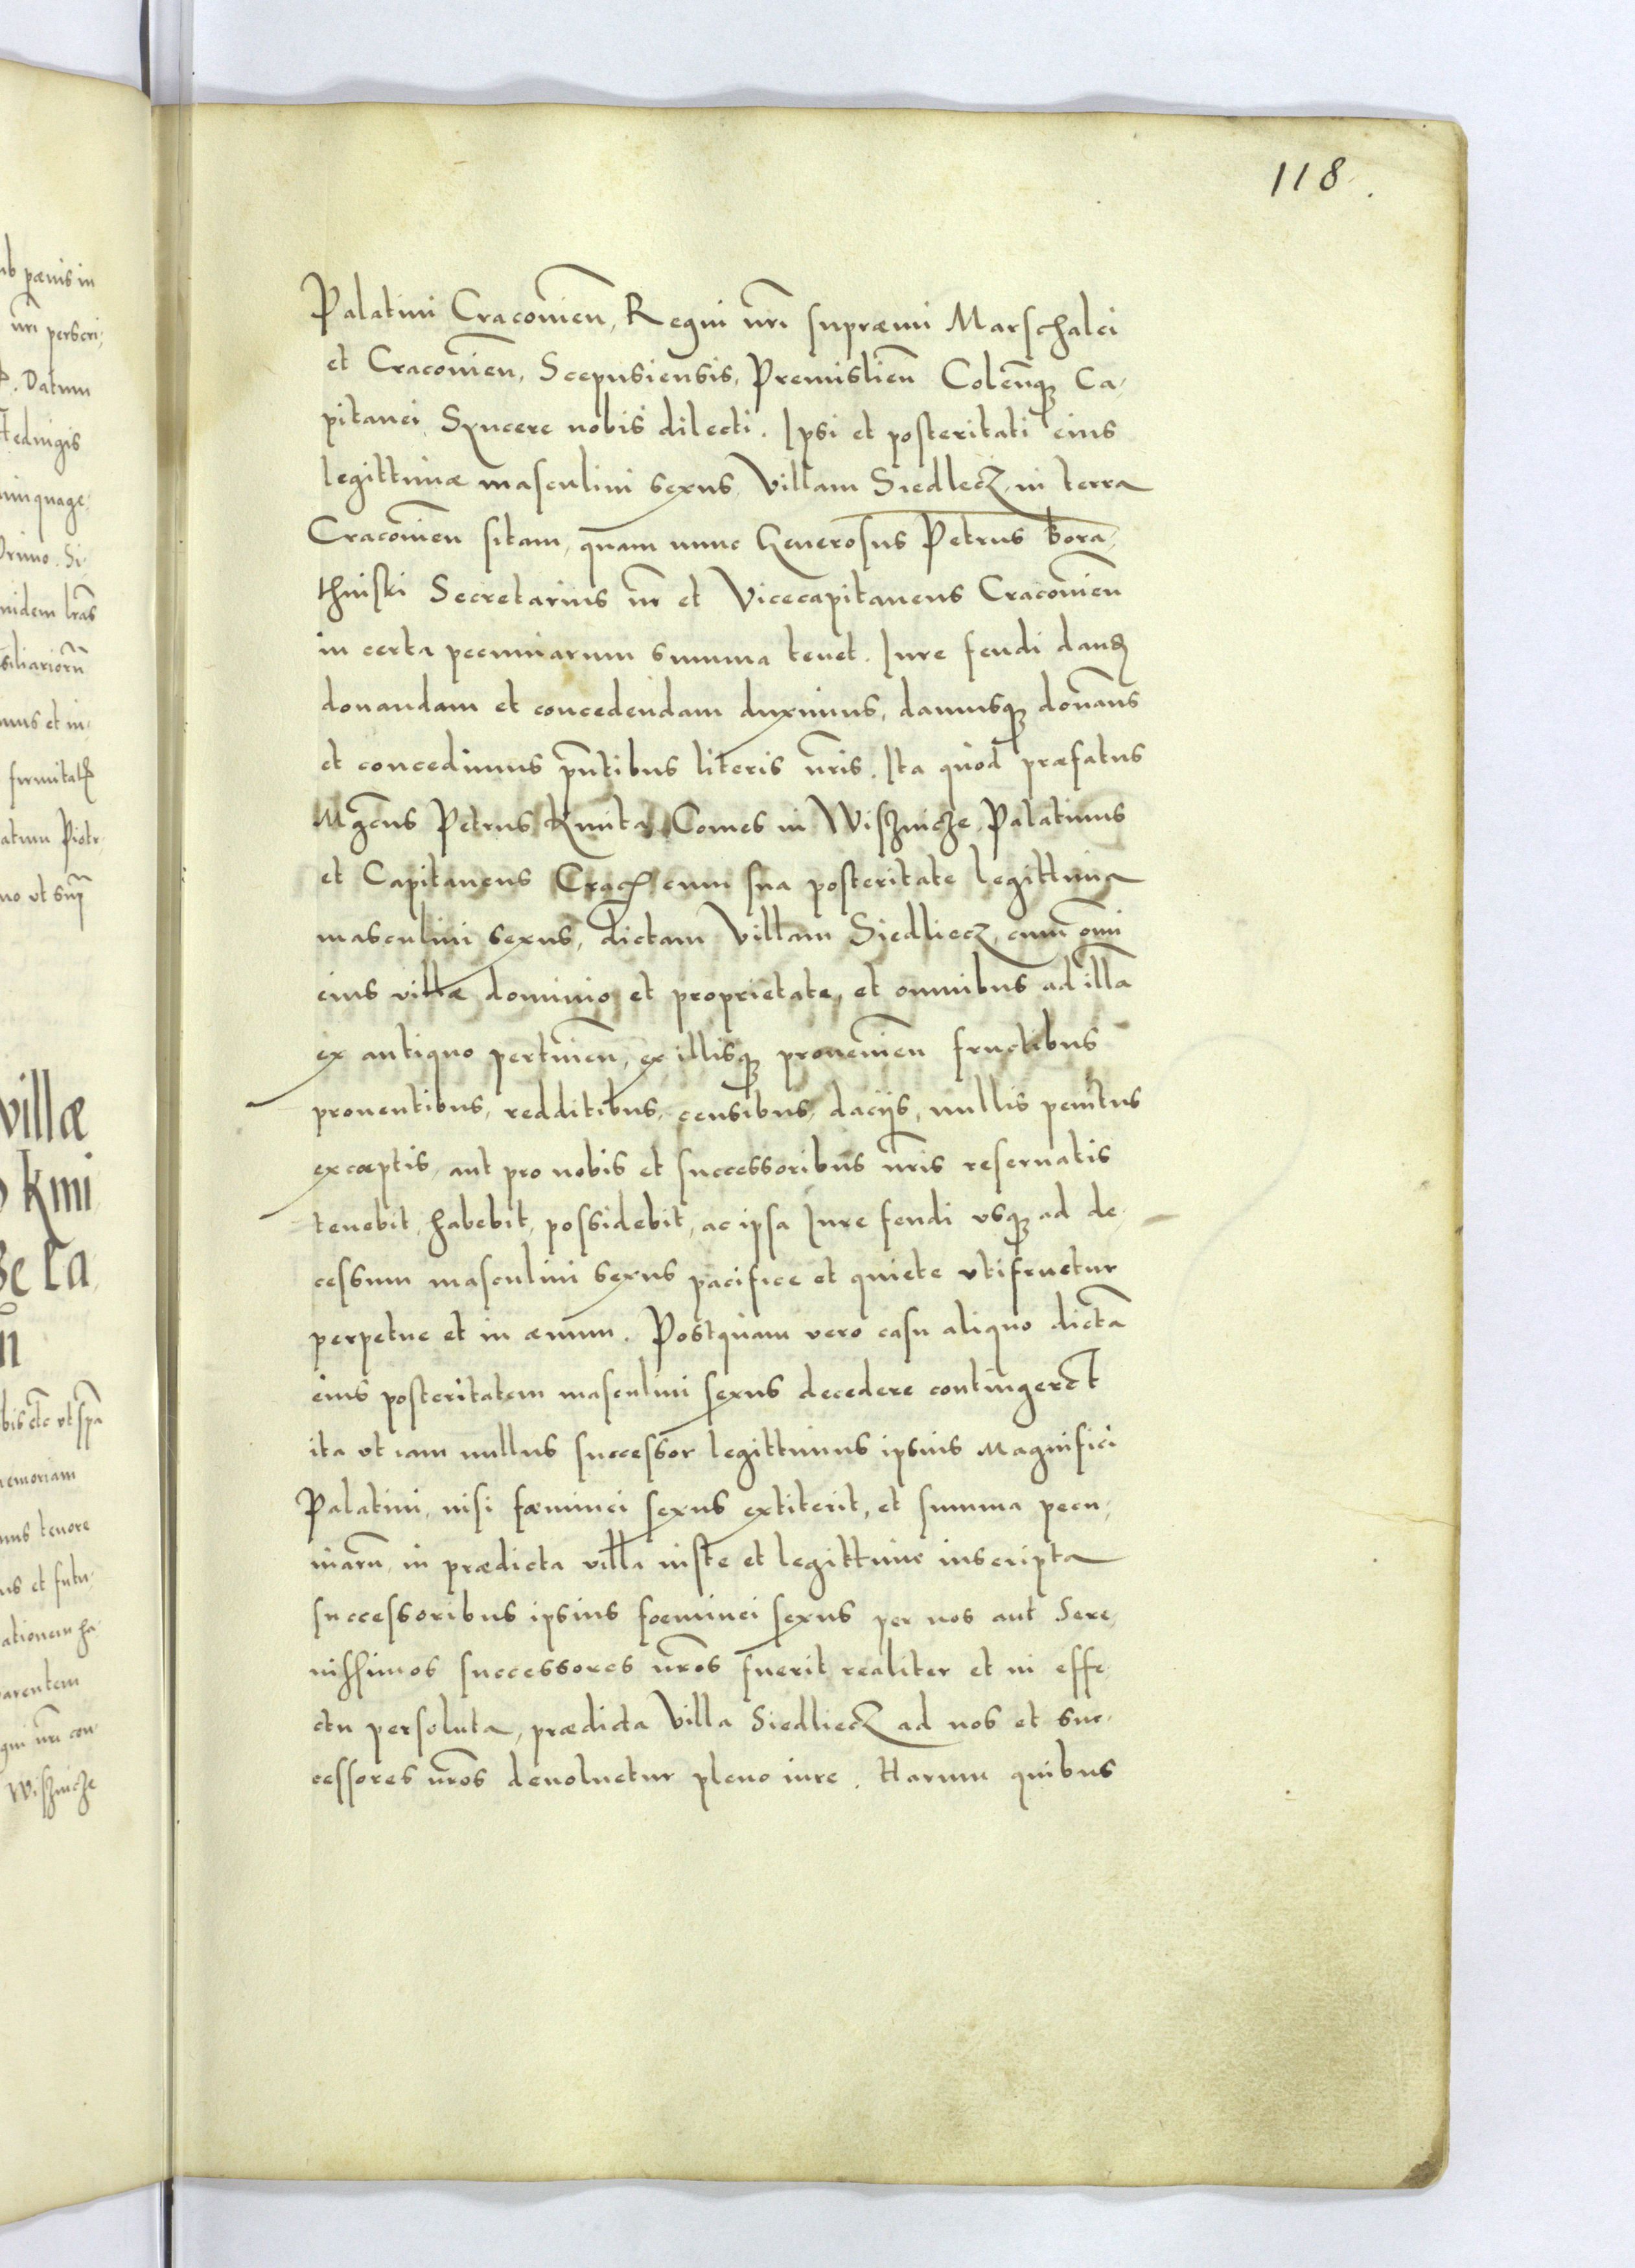 118.
Palatini Cracovień, Regni nr̄i supræmi Marschalci
et Cracovień, Scepusiensis, Premislień Coleńq₃ Ca,
pitanei Syncere nobis dilecti. Ipsi et posteritati eius
legittimæ masculini sexus, Villam Siedlecz, in terra
Cracovień sitam, quam nunc Generosus Petrus bora,
thinski Secretarius nr̄ et Vicecapitaneus Cracovień
in certa pecuniarum summa tenet. Iure feudi dand
donandam et concedendam duximus, damusq₃ donam̄s
et concedimus p̄ntibus literis nr̄is. Ita quod præfatus
Mgc̄us Petrus Kmita Comes in Wisznicze Palatinus
et Capitaneus Crac cum sua posteritate legittima
masculini sexus, dictam Villam Siedliecz, cum om̄i
eius villæ dominio et proprietate, et omnibus ad illā
ex antiquo pertineń, ex illisq₃ provenień fructibus
proventibus, redditibus, censibus, dacijs, nullis penitus
excæptis, aut pro nobis et successoribus nr̄is reservatis
tenebit, habebit, possidebit, ac ipsa Iure feudi usq₃ ad de,
cessum masculini sexus pacifice et quiete utifruetur
perpetue et in ævum. Postquam vero casu aliquo dictā
eius posteritatem masculini sexus decedere contingeret
ita ut iam nullus successor legittimus ipsius Magnifici
Palatini, nisi fæminei sexus extiterit, et summa pecu,
niarū in prædicta villa iuste et legittime inscripta
successoribus ipsius foeminei sexus per nos aut Sere,
nissimos successores nr̄os fuerit realiter et in effe,
ctu persoluta, prædicta Villa Siedliecz ad nos et suc,
cessores nr̄os devoluetur pleno iure. Harum quibus